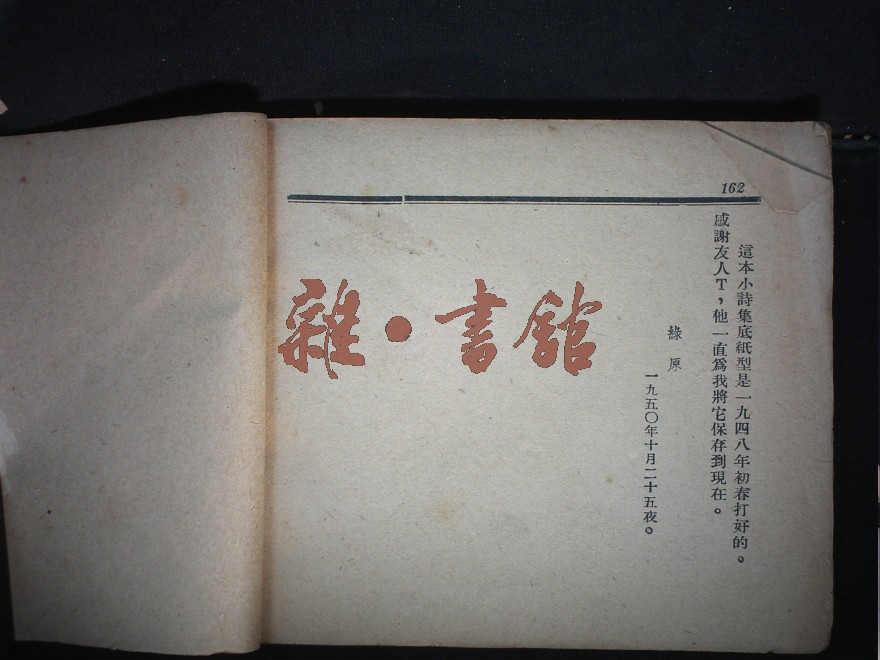 162
這本小詩集底紙型是一九四八年初春打好的。
感謝友人T，他一直爲我將它保存到現在。
綠原
一九五〇年十月二十五夜。
雜·書館